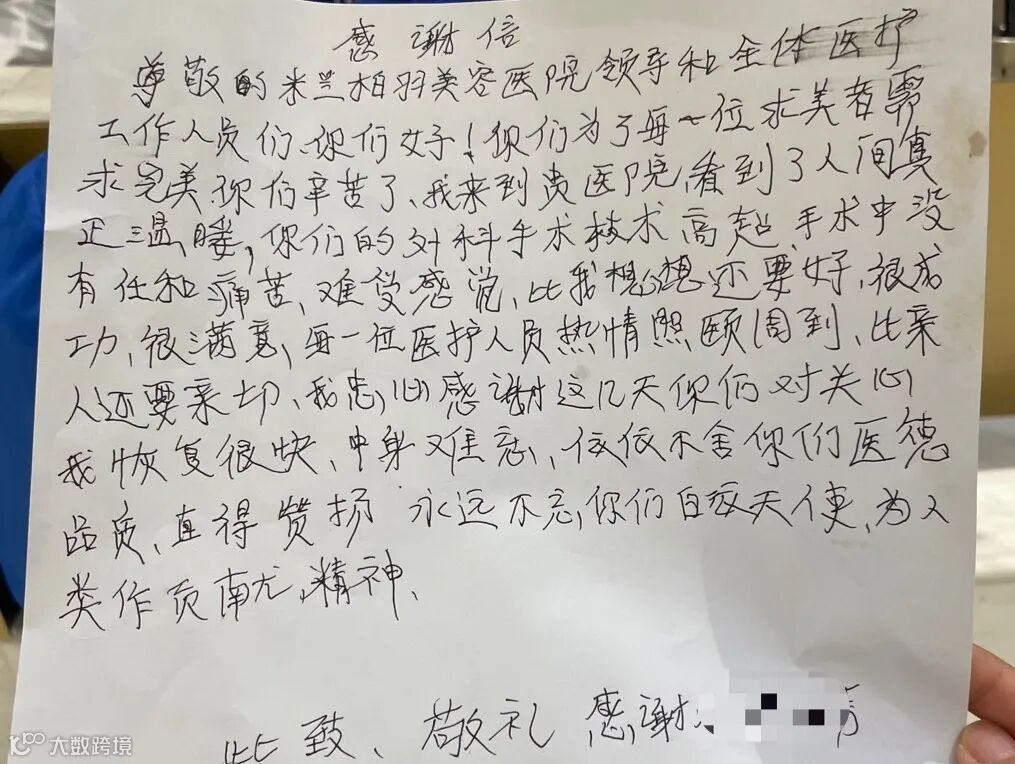 感谢信
尊敬的米兰柏羽美容医院领导和全体医护
工作人员们、你们好！你们为了每一位求美者需
求完美、你们辛苦了、我来到贵医院、看到了人间真
正温暖，你们的对科手术技术高超、手术中没
有任和痛苦、难受感觉、比我想想还要好、很成
功、很满意、每一位医护人员热情照顾周到、比亲
人还要亲切、我忠心感谢这几天你们对关心
我恢复很快、中身难忘、依依不舍你们医德
品质、直得赞扬 永远不忘你们白衣天使、为人
类作贡南尤、精神、
此致、敬礼 感谢
大数跨境